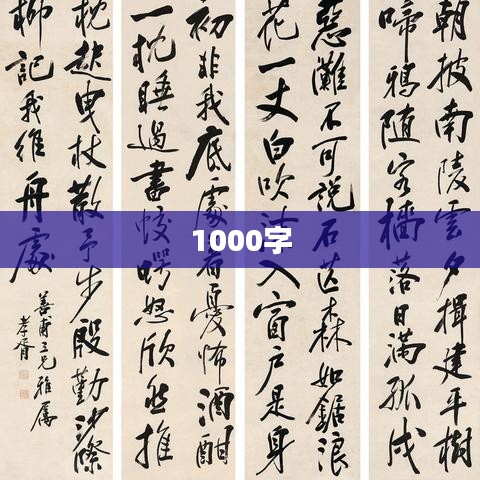 朝披南陵雲夕揖建平樹
啼鴉隨客檣落日滿孤戍
惡灘不可說石芒森如鋸浪
花一丈白吹沫入窗戶是身
初非我底處着憂怖酒酣
一枕睡過盡蛟鰐怒欣然推
枕起曳杖散予步殷勤沙際
柳記我維舟處
善甫三兄雅屬
孝胥
1000字